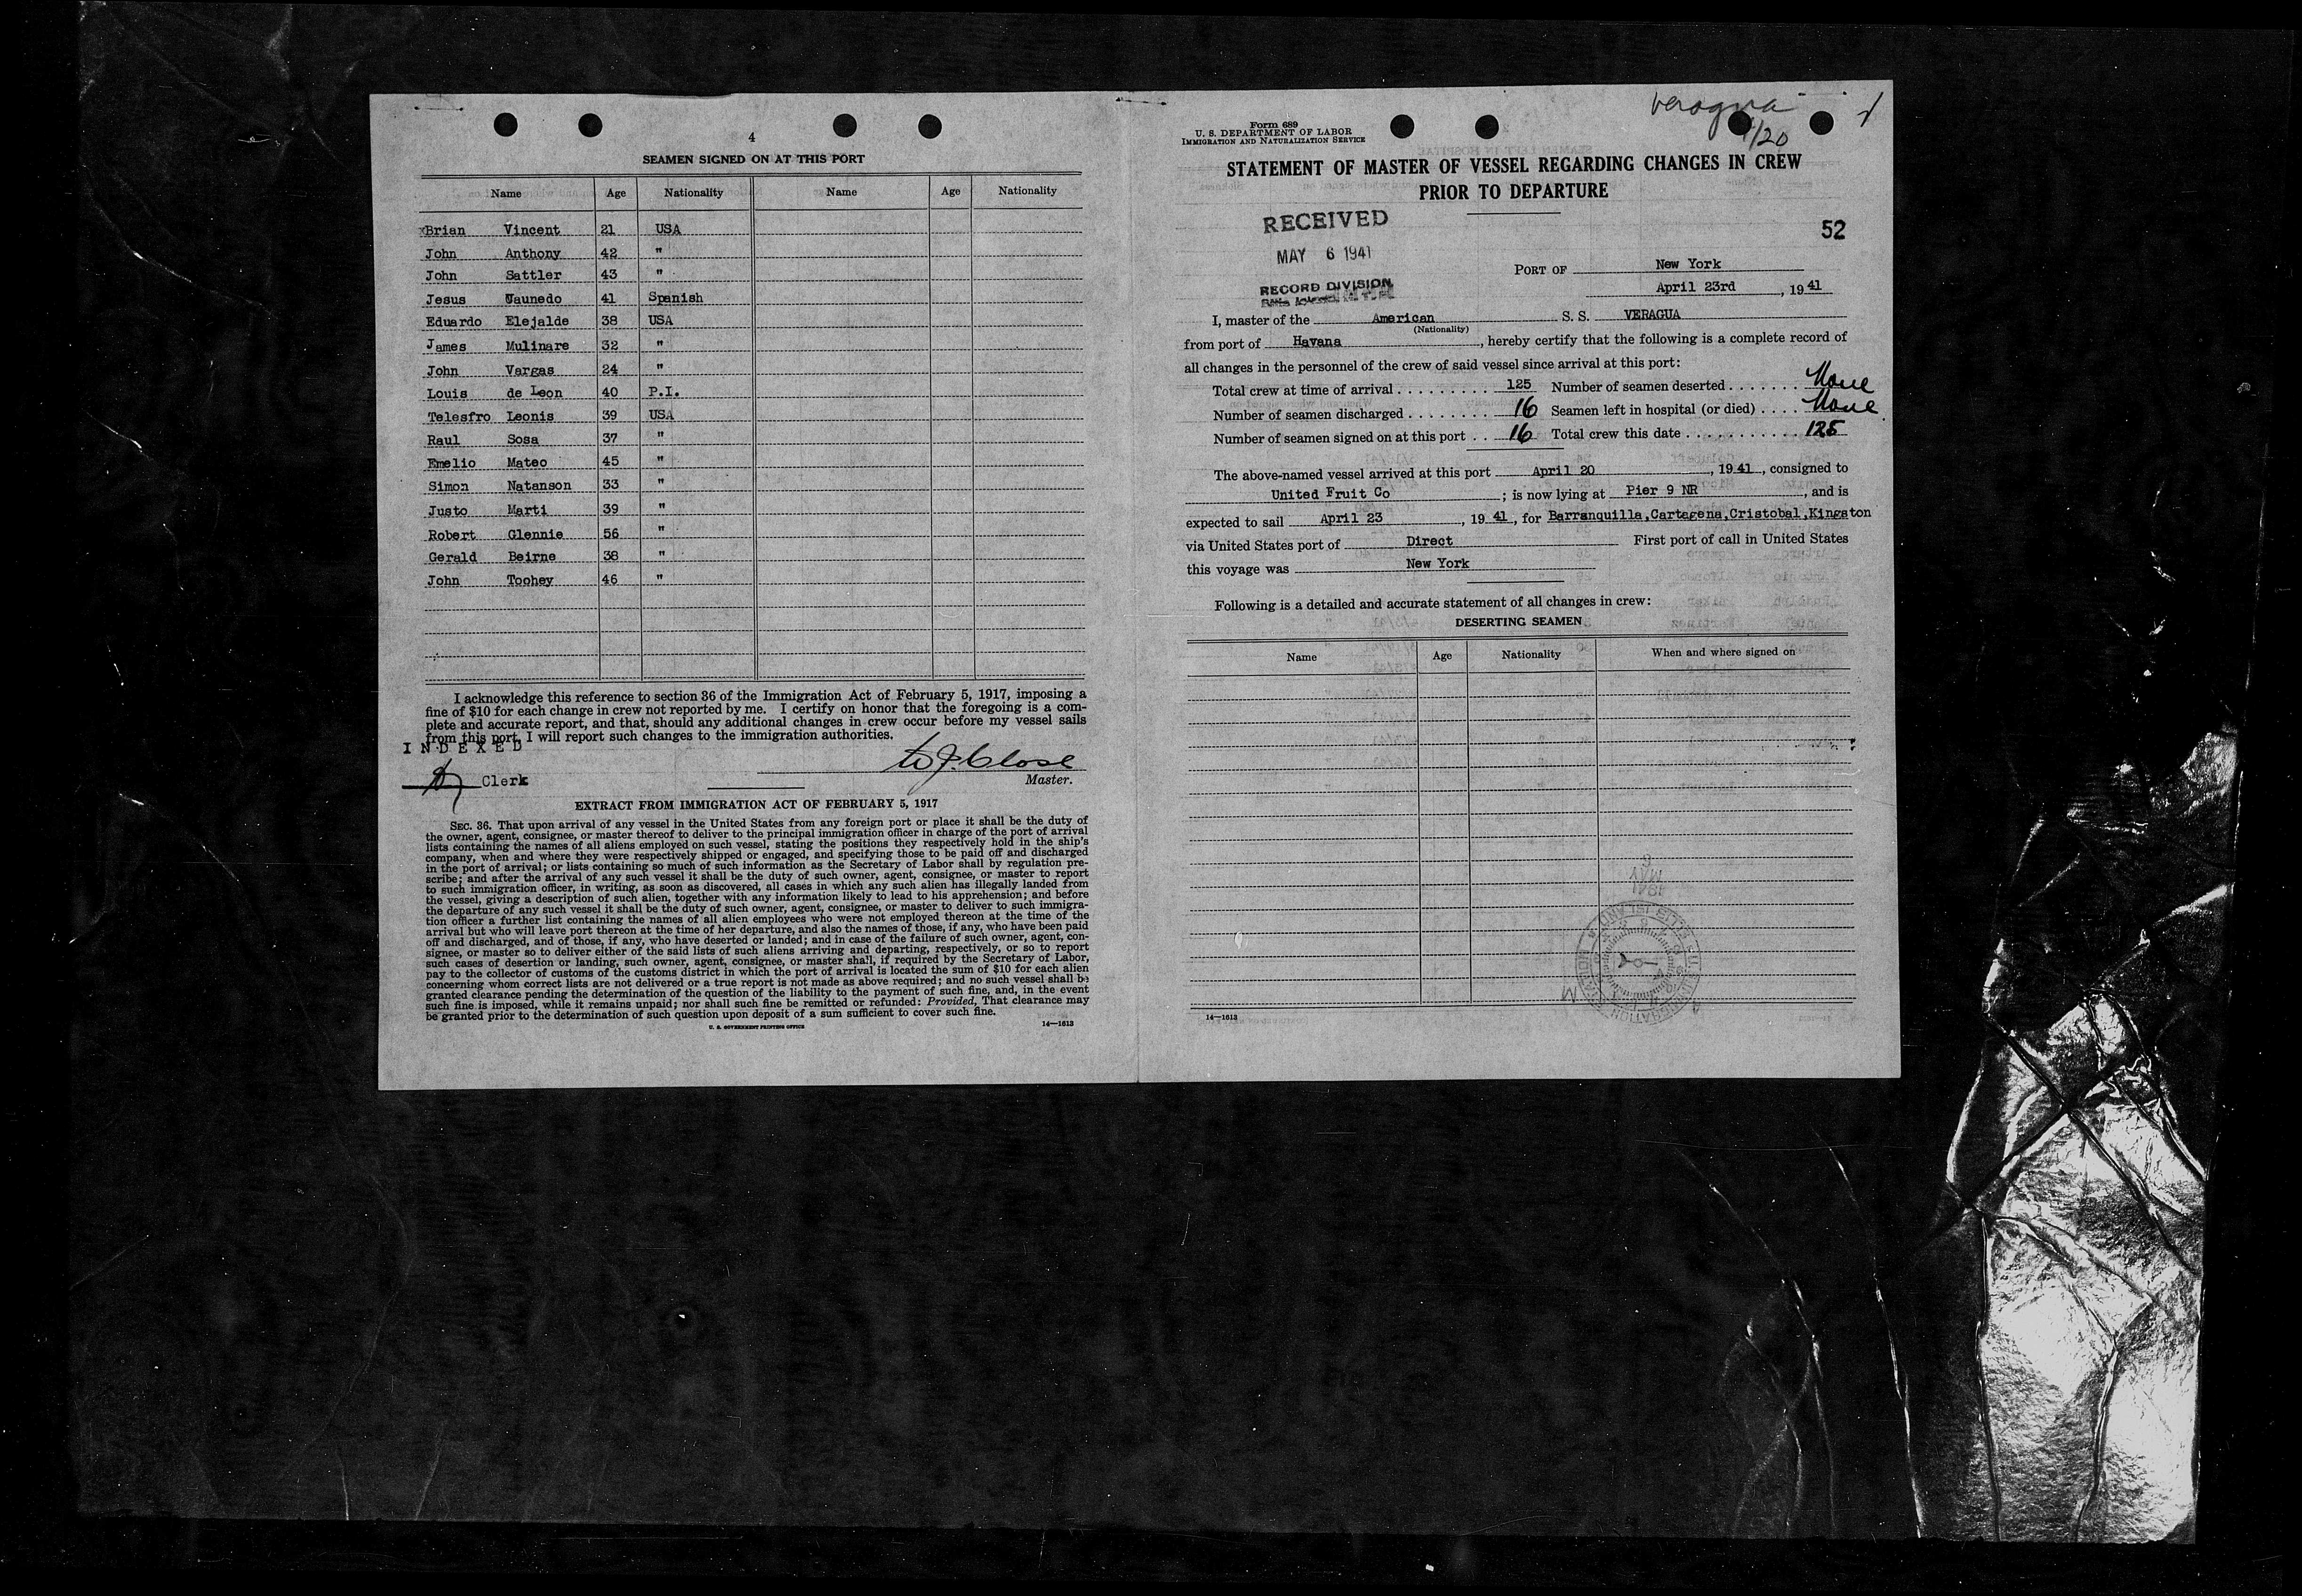 4
SEAMEN SIGNED ON AT THIS PORT
Name Age Nationality Name Age Nationality
Brian Vincent 21 USA
John Anthony 42 "
John Sattler 43 "
Jesus Jaunedo 41 Spanish
Eduardo Elejalde 38 USA
James Mulinare 32 "
John Vargas 24 "
Louis de Leon 40 P.I.
Telesfro Leonis 39 USA
Raul Sosa 37 "
Emelio Mateo 45 "
Simon Natanson 33 "
Justo Marti 39 "
Robert Glennie 56 "
Gerald Beirne 38 "
John Toohey 46 "
I acknowledge this reference to section 36 of the Immigration Act of February 5, 1917, imposing a
fine of $10 for each change in crew not reported by me. I certify on honor that the foregoing is a com-
plete and accurate report, and that, should any additional changes in crew occur before my vessel sails
from this port, I will report such changes to the immigration authorities.
INDEXED
W J Close
Clerk
Master.
EXTRACT FROM IMMIGRATION ACT OF FEBRUARY 5, 1917
SEC. 36. That upon arrival of any vessel in the United States from any foreign port or place it shall be the duty of
the owner, agent, consignee, or master thereof to deliver to the principal immigration officer in charge of the port of arrival
lists containing the names of all aliens employed on such vessel, stating the positions they respectively hold in the ship's
company, when and where they were respectively shipped or engaged, and specifying those to be paid off and discharged
in the port of arrival; or lists containing so much of such information as the Secretary of Labor shall by regulation pre-
scribe; and after the arrival of any such vessel it shall be the duty of such owner, agent, consignee, or master to report
to such immigration officer, in writing, as soon as discovered, all cases in which any such alien has illegally landed from
the vessel, giving a description of such alien, together with any information likely to lead to his apprehension; and before
the departure of any such vessel it shall be the duty of such owner, agent, consignee, or master to deliver to such immigra-
tion officer a further list containing the names of all alien employees who were not employed thereon at the time of the
arrival but who will leave port thereon at the time of her departure, and also the names of those, if any, who have been paid
off and discharged, and of those, if any, who have deserted or landed; and in case of the failure of such owner, agent, con-
signee, or master so to deliver either of the said lists of such aliens arriving and departing, respectively, or so to report
such cases of desertion or landing, such owner, agent, consignee, or master shall, if required by the Secretary of Labor,
pay to the collector of customs of the customs district in which the port of arrival is located the sum of $10 for each alien
concerning whom correct lists are not delivered or a true report is not made as above required; and no such vessel shall be
granted clearance pending the determination of the question of the liability to the payment of such fine, and, in the event
such fine is imposed, while it remains unpaid; nor shall such fine be remitted or refunded: Provided, That clearance may
be granted prior to the determination of such question upon deposit of a sum sufficient to cover such fine.
U. S. GOVERNMENT PRINTING OFFICE 14—1613
Veragua
/20
Form 689
U. S. DEPARTMENT OF LABOR
IMMIGRATION AND NATURALIZATION SERVICE
STATEMENT OF MASTER OF VESSEL REGARDING CHANGES IN CREW
PRIOR TO DEPARTURE
RECEIVED
MAY 6 1941
RECORD DIVISION
52
PORT OF New York
April 23rd, 1941
I, master of the American S. S. VERAGUA
(Nationality)
from port of Havana, hereby certify that the following is a complete record of
all changes in the personnel of the crew of said vessel since arrival at this port:
Total crew at time of arrival . . . . . . . . . 125 Number of seamen deserted . . . . . . . None
Number of seamen discharged . . . . . . . . 16 Seamen left in hospital (or died) . . . . None
Number of seamen signed on at this port . . 16 Total crew this date . . . . . . . . . . . 125
The above-named vessel arrived at this port April 20, 1941, consigned to
United Fruit Co; is now lying at Pier 9 NR, and is
expected to sail April 23, 1941, for Barranquilla,Cartagena,Cristobal,Kingston
via United States port of Direct First port of call in United States
this voyage was New York
Following is a detailed and accurate statement of all changes in crew:
DESERTING SEAMEN
Name Age Nationality When and where signed on
14—1613